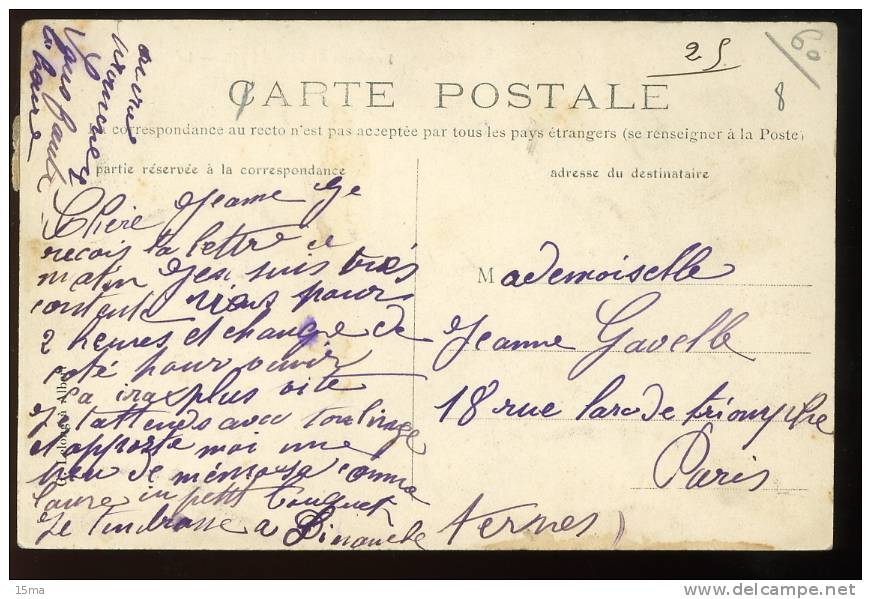 25
60
8
CARTE POSTALE
La correspondance au recto n'est pas acceptée par tous les pays étrangers (se renseigner à la Poste)
partie réservée à la correspondance
adresse du destinataire
Chère Jeanne Je
recois ta lettre ce
matin Jen suis très
contente viens pour
2 heures et change de
coté pour venir
sa iras plus vite
Je tattends avec ton
et apporte moi une
peu de comme
un petit bouquet
Je tembrasse a Dimanche
Mademoiselle
Jeanne Gavelle
18 rue larc de triomphe
Paris
Ternes
Lelong à Albert
15ma
www.delcampe.net